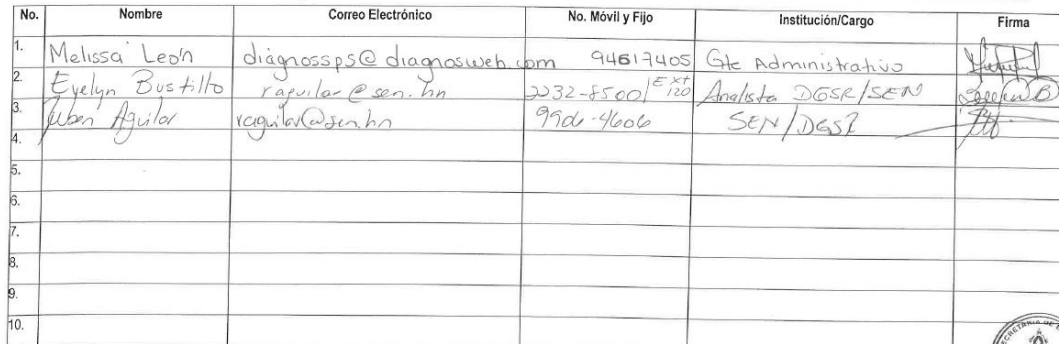 No. Nombre Correo Electrónico No. Móvil y Fijo Institución/Cargo Firma
1. Melissa León diagnossps@diagnosweb.com 94617405 Gte Administrativo
2. Evelyn Bustillo raguilar@sen.hn 2232-8500/Ext 120 Analista DGSR/SEN
3. Ruben Aguilar raguilar@sen.hn 9906-4606 SEN/DGSR
4.
5.
6.
7.
8.
9.
10.
SECRETARIA DE